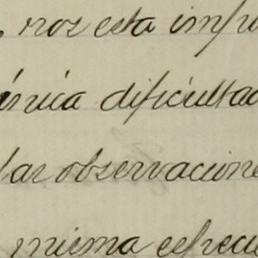 roz esta impu
única dificultad
las observacione
misma especi